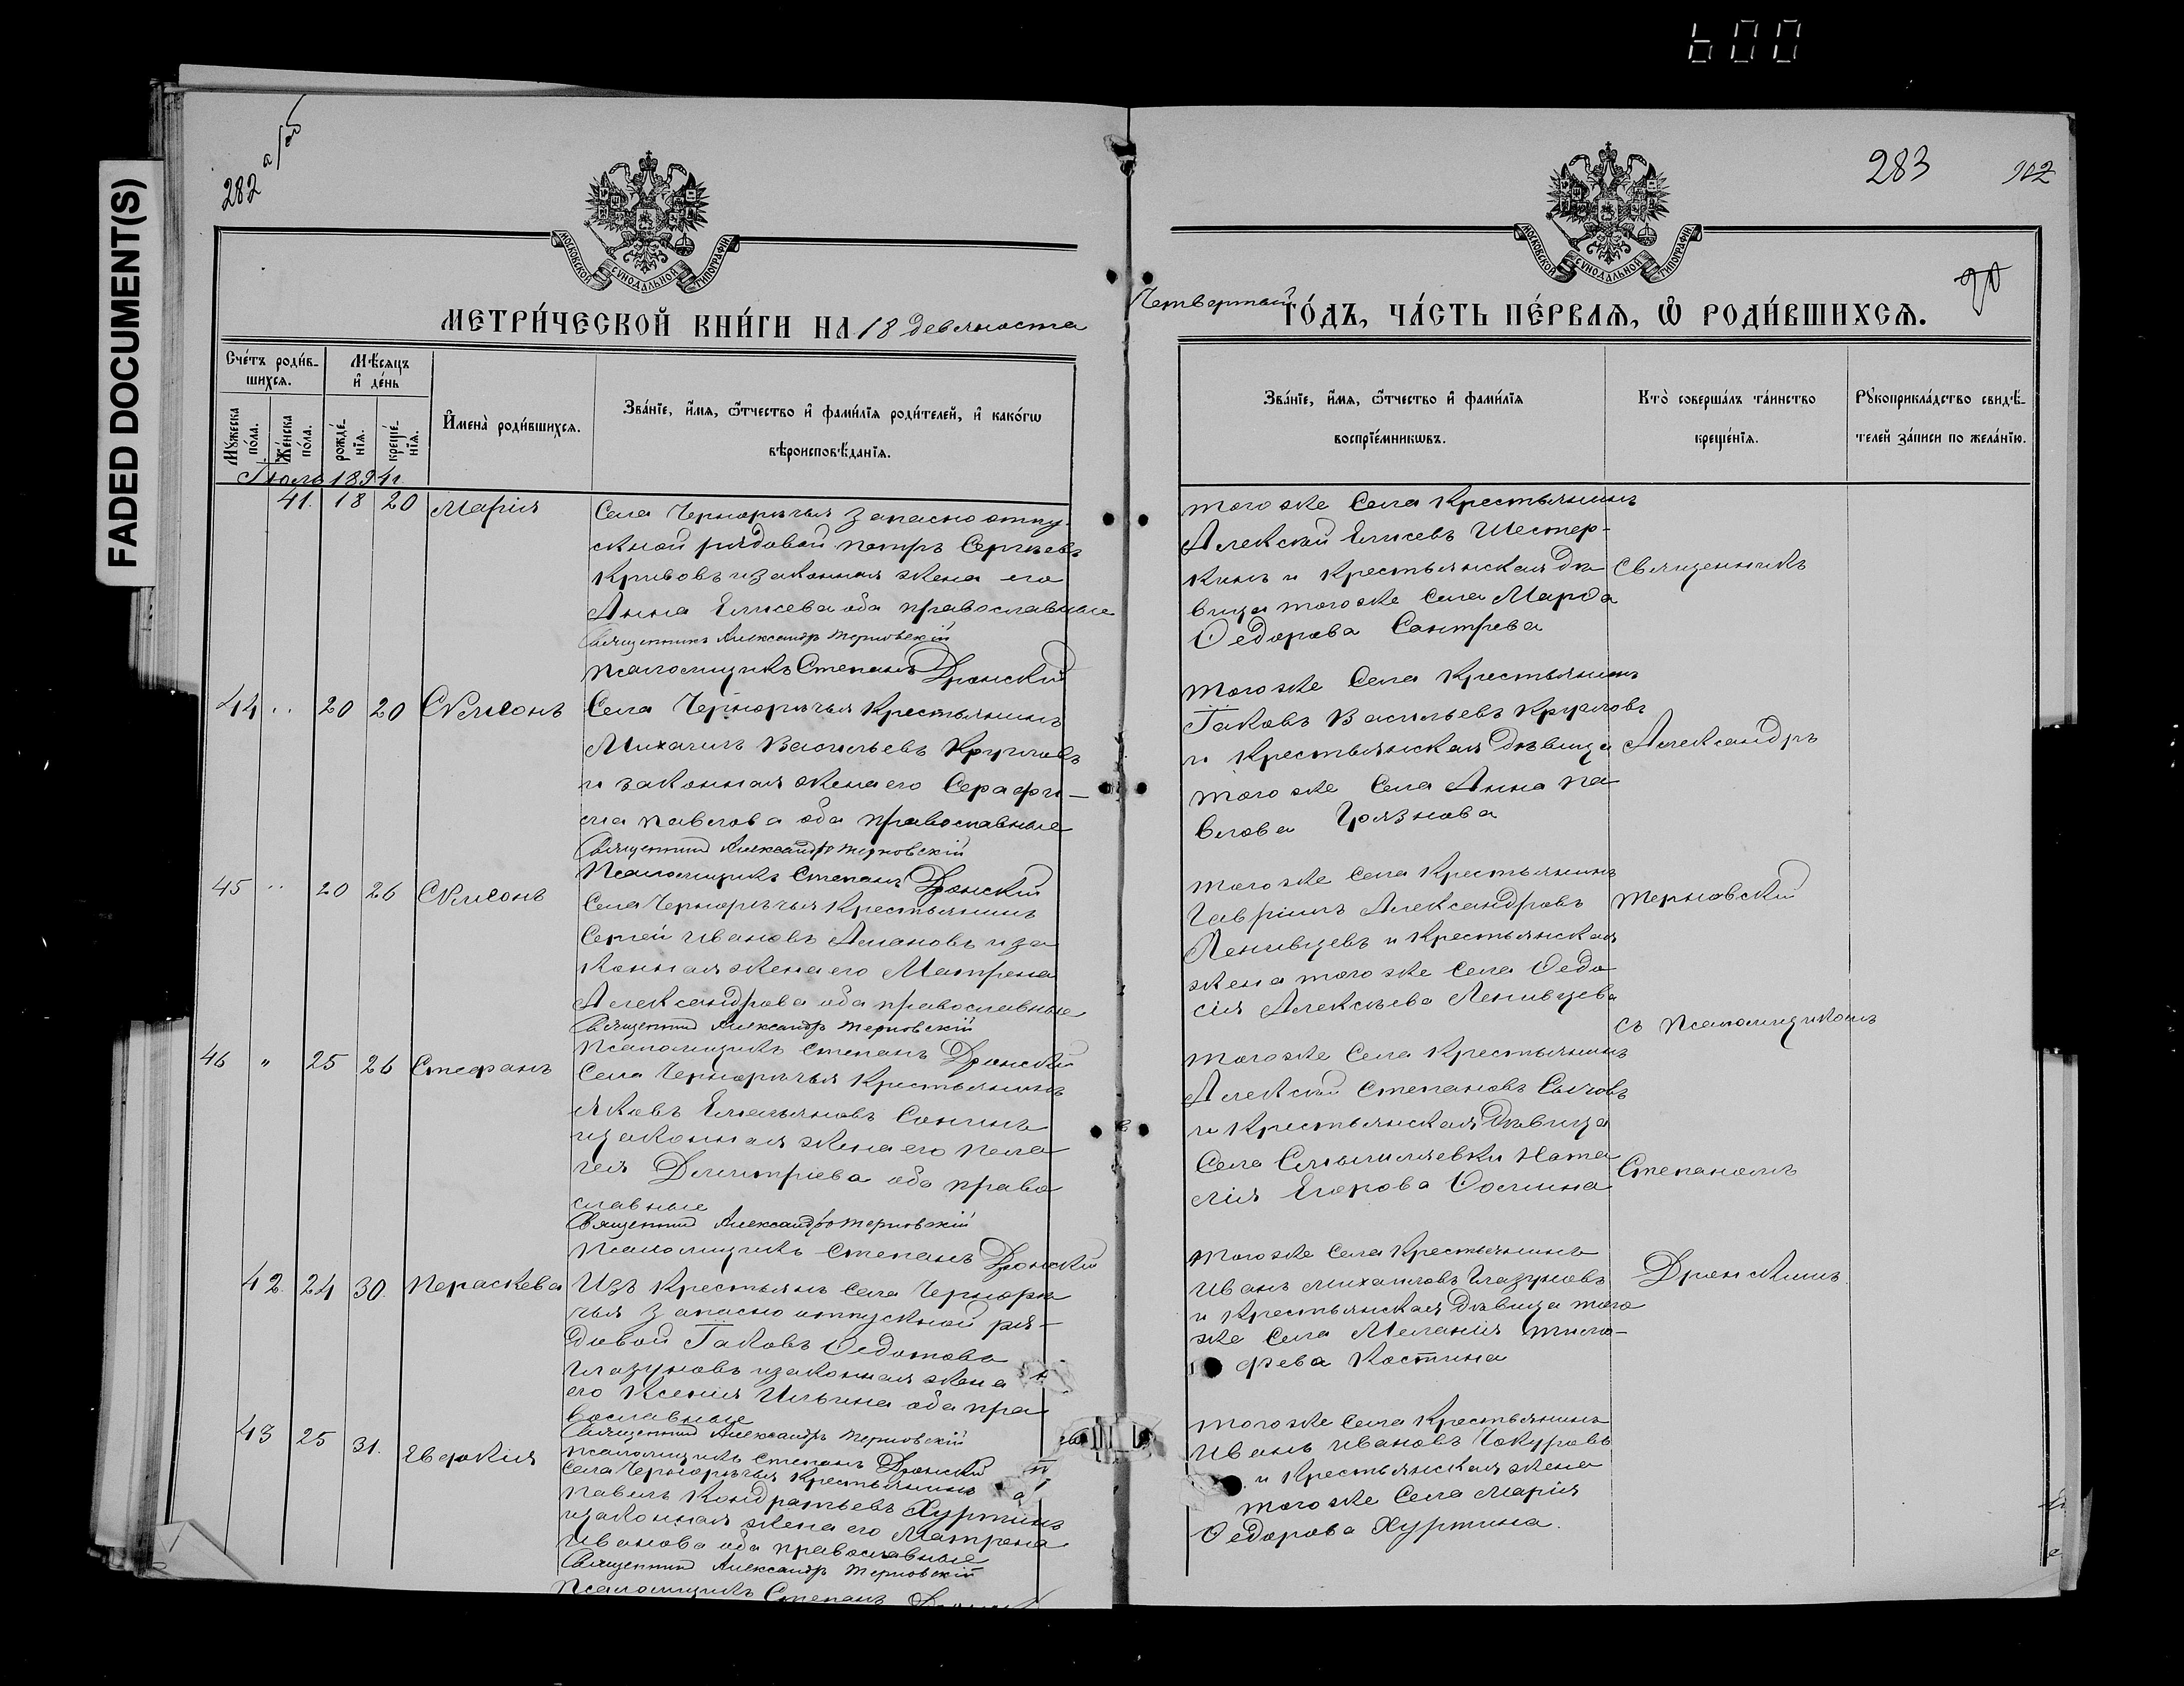 600
FADED DOCUMENT(S)
282
283
МОСКОВСКОЙ СУНОДАЛЬНОЙ ТИПОГРАФІИ
МОСКОВСКОЙ СУНОДАЛЬНОЙ ТИПОГРАФІИ
МЕТРИ́ЧЕСКОЙ КНИ́ГИ НА 18 девяноста
Четвертый ГО́ДЪ, ЧА́СТЬ ПЕ́РВАѦ, Ѡ҆ РОДИ́ВШИХСѦ.
Сче́тъ роди́в-
шихсѧ.
Мѣ́сяцъ
и҆ де́нь
Мꙋ́жеска
по́ла.
Же́нска
по́ла.
рожде́-
нїѧ.
креще́-
нїѧ.
И҆мена̀ роди́вшихсѧ.
Зва́нїе, и҆́мѧ, ѻ҆́тчество и҆ фами́лїѧ роди́телей, и҆ како́гѡ
вѣроисповѣ́данїѧ.
Зва́нїе, и҆́мѧ, ѻ҆́тчество и҆ фами́лїѧ
воспрїе́мникѡвъ.
Кто̀ соверша́лъ та́инство
креще́нїѧ.
Рꙋкоприкла́дство свидѣ́-
телей за́писи по жела́нїю.
Іюль 1894 г.
41. 18 20 Марія
Села Чернорѣчья запасно отпу-
скной рядовой Петръ Сергѣевъ
Кривовъ и законная жена его
Анна Елисева оба православные
Священникъ Александръ Терновскій
Псаломщикъ Степанъ Дронскій
того же Села Крестьянинъ
Алексѣй Елисевъ Шестер-
кинъ и крестьянская дѣ
вица того же Села Марфа
Ѳедорова
Священникъ
44 " 20 20 Сѵмеонъ
Села Чернорѣчья Крестьянинъ
Михаилъ Васильевъ Кругловъ
и законная жена его Серафи-
ма Павлова оба православные
Священникъ Александръ Терновскій
Псаломщикъ Степанъ Дронскій
того же Села Крестьянинъ
Іаковъ Васильевъ Кругловъ
и Крестьянская дѣвица
того же Села Анна Па
влова Грязнова
Александръ
45 " 20 26 Сѵмеонъ
Села Чернорѣчья Крестьянинъ
Сергѣй Ивановъ Амановъ и за
конная жена его Матрена
Александрова оба православные
Священникъ Александръ Терновскій
Псаломщикъ Степанъ Дронскій
того же Села Крестьянинъ
Гавріилъ Александровъ
Ленивцевъ и Крестьянская
жена того же Села Ѳедо
сія Алексѣева Ленивцева
Терновскій
съ Псаломщикомъ
46 " 25 26 Стефанъ
Села Чернорѣчья Крестьянинъ
Яковъ Емельяновъ Сонинъ
и законная жена его Пела
гея Димитріева оба право
славные
Священникъ Александръ Терновскій
Псаломщикъ Степанъ Дронскій
того же Села Крестьянинъ
Алексѣй Степановъ Сычовъ
и крестьянская дѣвица
Села Смышляевки Ната
лія Егорова Ѳомина
Степаномъ
42. 24 30. Параскева
Изъ Крестьянъ Села Чернорѣ
чья запасно отпускной ря-
довой Іаковъ Ѳедотовъ
Глазуновъ и законная жена
его Ксенія Ильина оба пра
вославные
Священникъ Александръ Терновскій
Псаломщикъ Степанъ Дронскій
того же Села Крестьянинъ
Иванъ Михаиловъ Глазуновъ
и крестьянская дѣвица того
же Села Меланія Тимо-
фѣева Костина
Дронскимъ.
43 25 31. Евфокія
Села Чернорѣчья Крестьянинъ
Павелъ Кондратьевъ Хуртинъ
и законная жена его Матрена
Иванова оба православные
Священникъ Александръ Терновскій
Псаломщикъ Степанъ
того же Села Крестьянинъ
Иванъ Ивановъ Чокуровъ
и Крестьянская жена
того же Села Марія
Ѳедорова Хуртина.